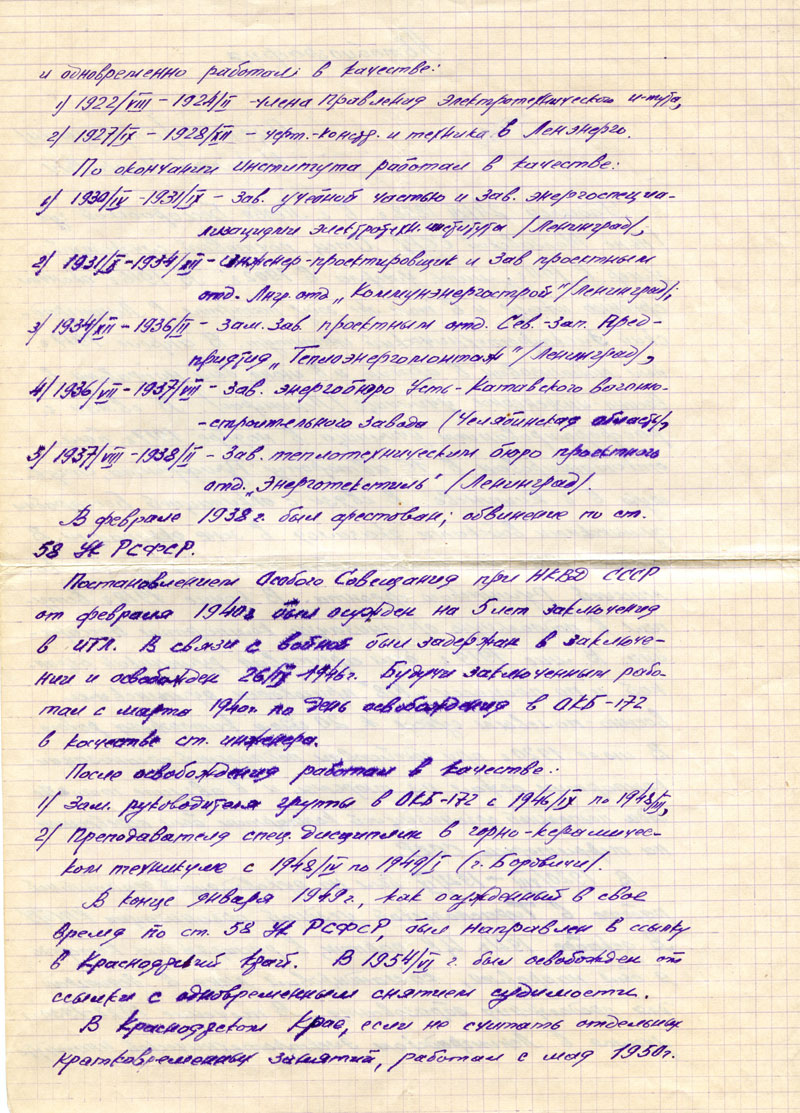 и одновременно работал в качестве:
1) 1922/VIII – 1924/II – члена Правления Электротехнического и-тута,
2) 1927/IX – 1928/XII – черт.-констр. и техника в Ленэнерго.
По окончании института работал в качестве:
1) 1930/IV – 1931/IX – Зав. учебной частью и Зав. энергоспециа-
лизациями электротехн. института /Ленинград/,
2) 1931/IX – 1934/XII – инженер-проектировщик и Зав проектным
отд. Лнгр. отд. „Коммунэнергострой" /Ленинград/;
3) 1934/XII – 1936/VI – Зам. Зав. проектным отд. Сев.-Зап. Пред-
приятия „Теплоэнергомонтаж" /Ленинград/,
4) 1936/VII – 1937/VII – Зав. энергобюро Усть-Катавского вагоно-
-строительного завода (Челябинская область/,
5) 1937/VIII – 1938/II – Зав. теплотехническим бюро проектного
отд. „Энерготекстиль" /Ленинград/.
В феврале 1938 г. был арестован; обвинение по ст.
58 УК РСФСР.
Постановлением Особого Совещания при НКВД СССР
от февраля 1940 г был осужден на 5 лет заключения
в ИТЛ. В связи с войной был задержан в заключе-
нии и освобожден 26/IX 1946 г. Будучи заключенным рабо-
тал с марта 1940 г. по день освобождения в ОКБ-172
в качестве ст. инженера.
После освобождения работал в качестве:
1) Зам. руководителя группы в ОКБ-172 с 1946/IX по 1948/III,
2) Преподавателя спец. дисциплин в горно-керамичес-
ком техникуме с 1948/IV по 1949/I (г. Боровичи/.
В конце января 1949 г., как осужденный в свое
время по ст. 58 УК РСФСР, был направлен в ссылку
в Красноярский край. В 1954/VI г. был освобожден от
ссылки с одновременным снятием судимости.
В Красноярском Крае, если не считать отдельных
кратковременных занятий, работал с мая 1950 г.